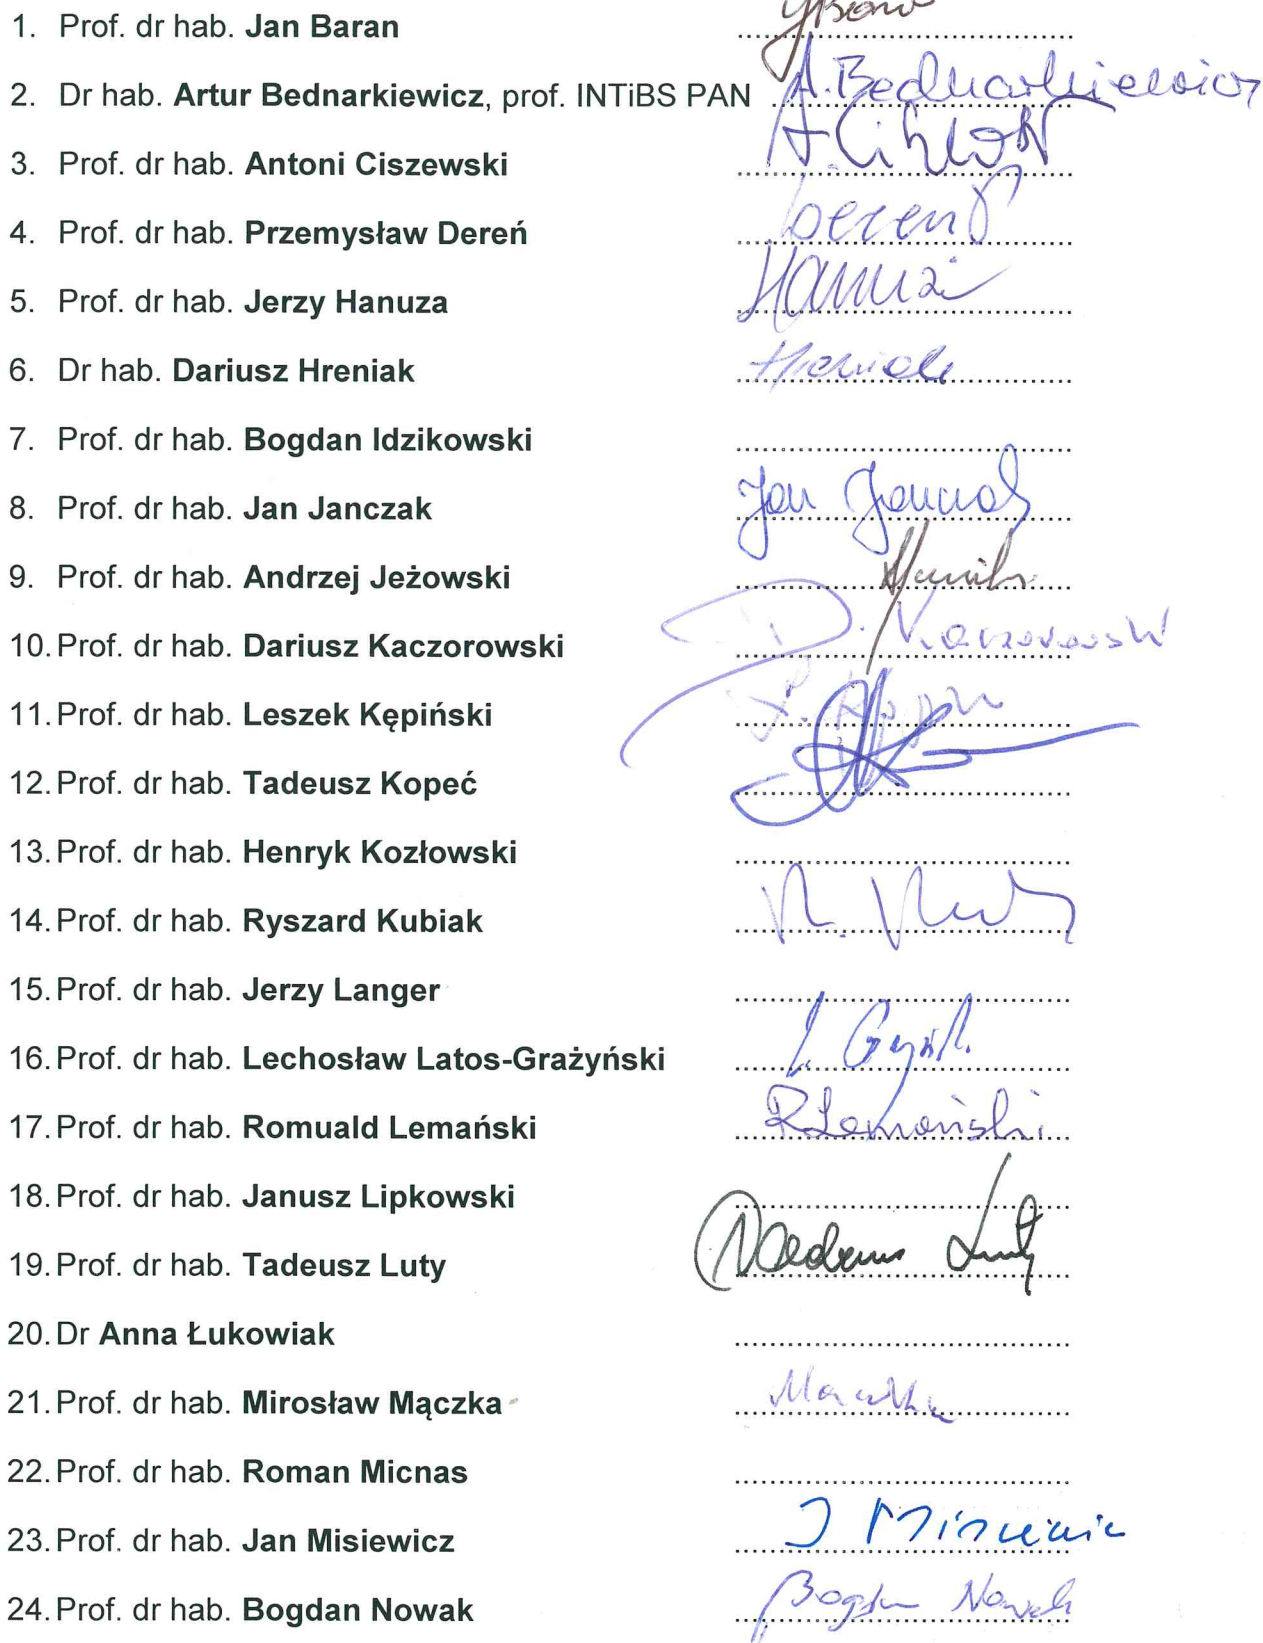 1. Prof. dr hab. Jan Baran
2. Dr hab. Artur Bednarkiewicz, prof. INTiBS PAN A. Bednarkiewicz
3. Prof. dr hab. Antoni Ciszewski
4. Prof. dr hab. Przemysław Dereń Dereń
5. Prof. dr hab. Jerzy Hanuza Hanuza
6. Dr hab. Dariusz Hreniak Hreniak
7. Prof. dr hab. Bogdan Idzikowski
8. Prof. dr hab. Jan Janczak Jan Janczak
9. Prof. dr hab. Andrzej Jeżowski
10. Prof. dr hab. Dariusz Kaczorowski D. Kaczorowski
11. Prof. dr hab. Leszek Kępiński
12. Prof. dr hab. Tadeusz Kopeć
13. Prof. dr hab. Henryk Kozłowski
14. Prof. dr hab. Ryszard Kubiak
15. Prof. dr hab. Jerzy Langer
16. Prof. dr hab. Lechosław Latos-Grażyński
17. Prof. dr hab. Romuald Lemański RLemański
18. Prof. dr hab. Janusz Lipkowski
19. Prof. dr hab. Tadeusz Luty Tadeusz Luty
20. Dr Anna Łukowiak
21. Prof. dr hab. Mirosław Mączka Mączka
22. Prof. dr hab. Roman Micnas
23. Prof. dr hab. Jan Misiewicz J Misiewicz
24. Prof. dr hab. Bogdan Nowak Bogdan Nowak